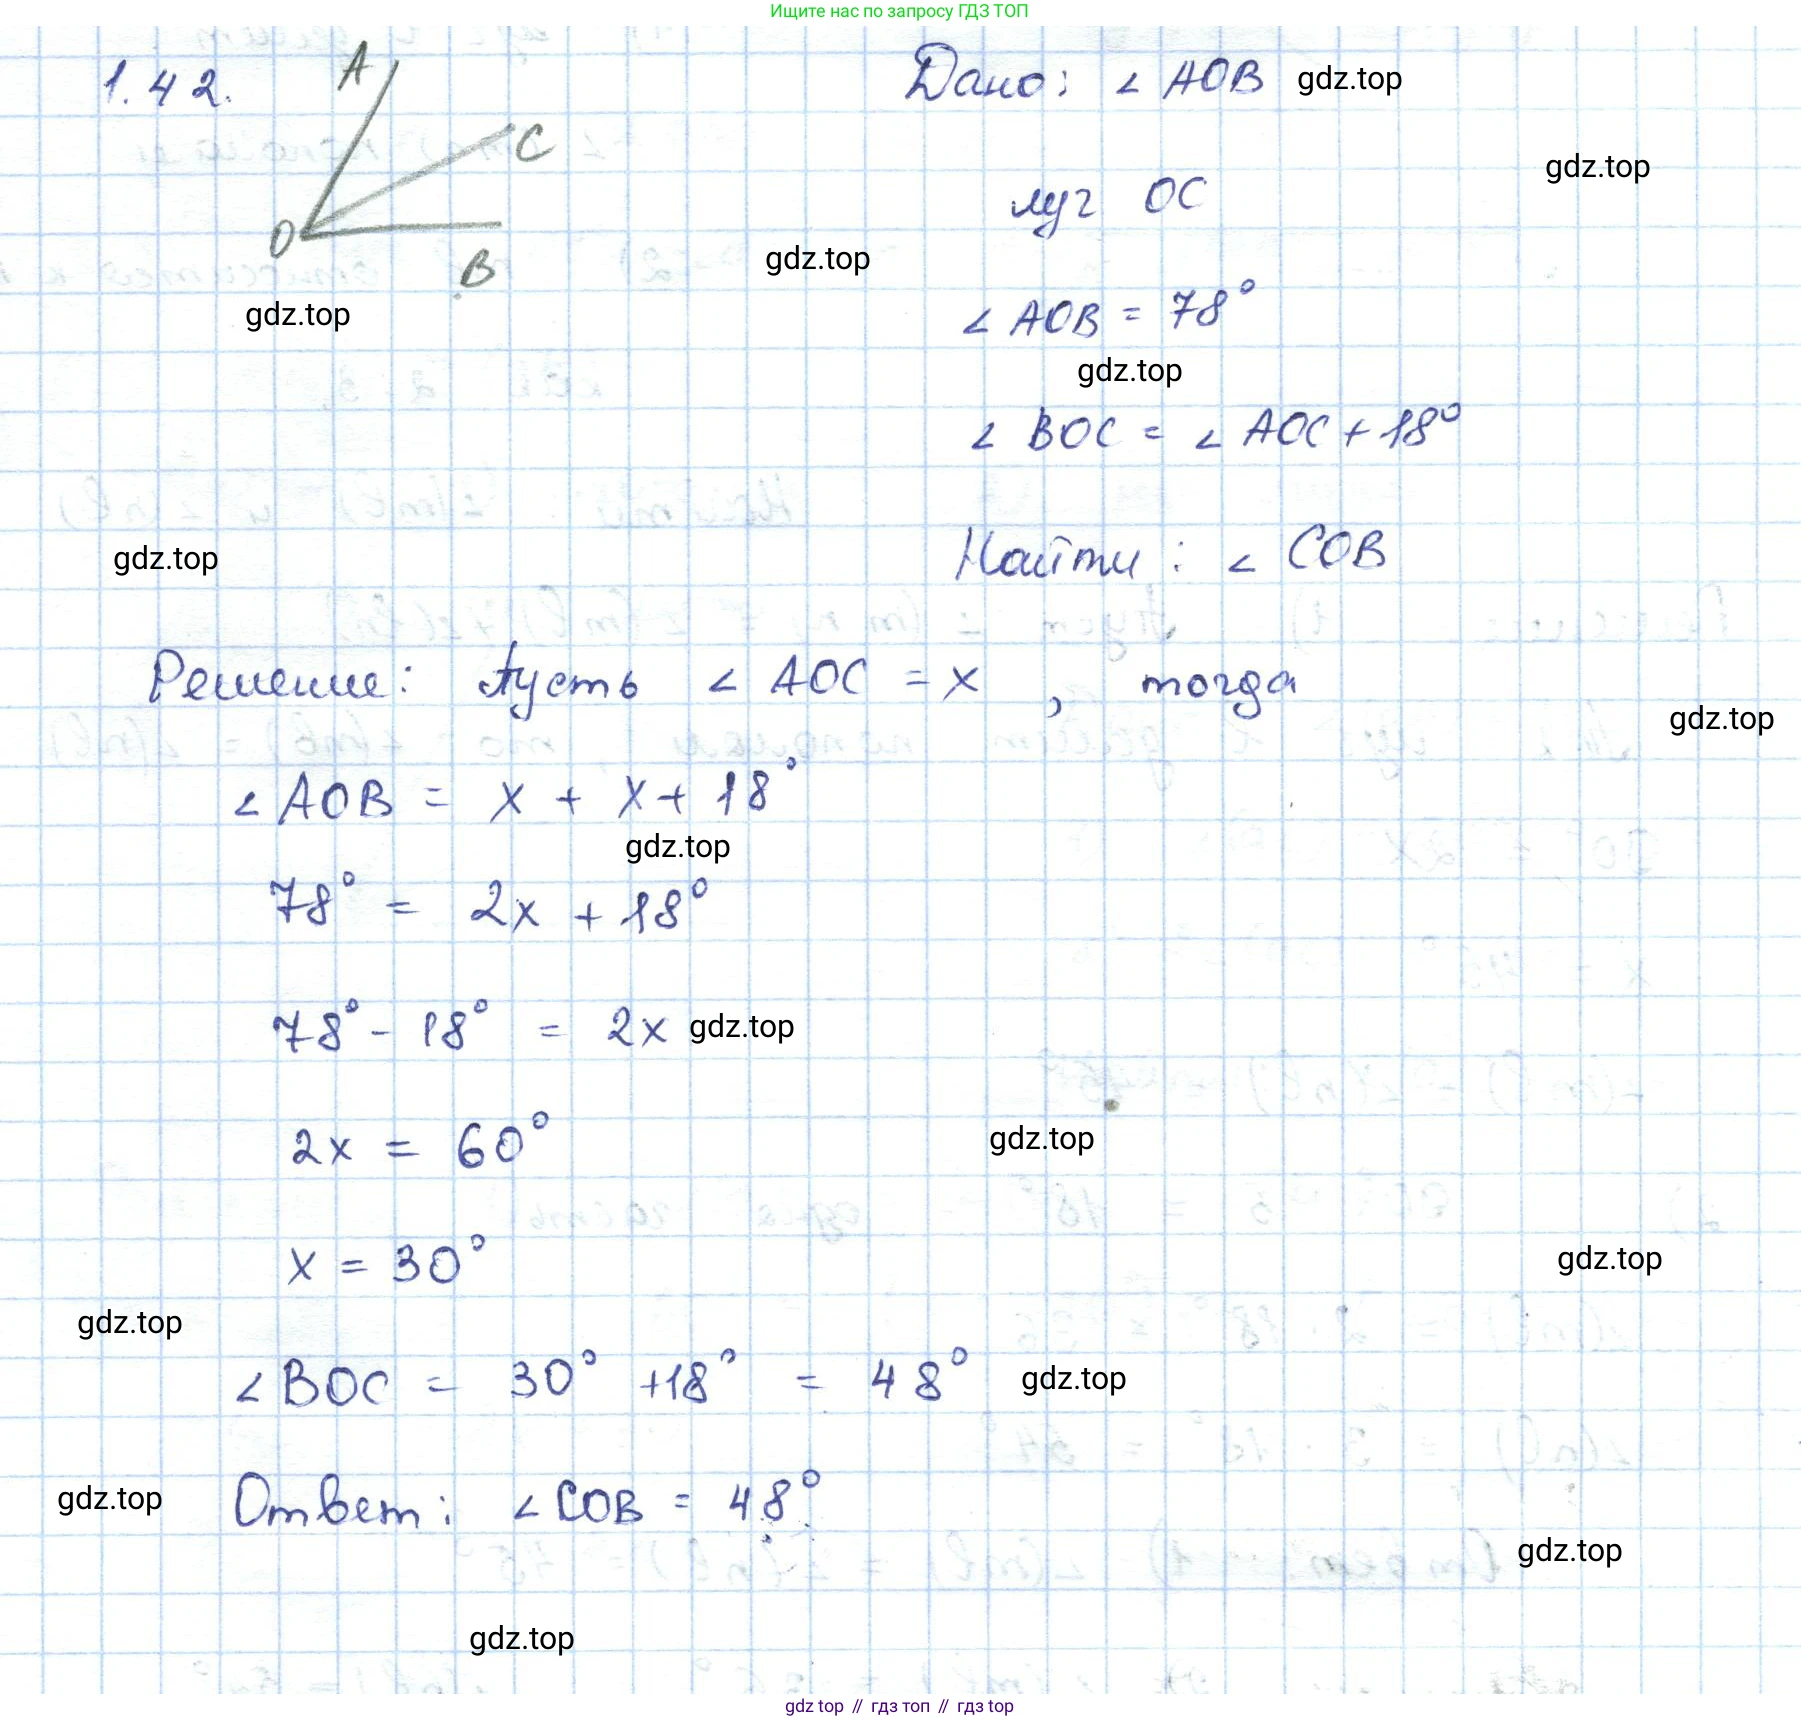 Ищите нас по запросу ГДЗ ТОП
1.42.
A
C
O
B
Дано: ∠ AOB gdz.top
gdz.top
луч OC
gdz.top
gdz.top
∠ AOB = 78°
gdz.top
∠ BOC = ∠ AOC + 18°
gdz.top
Найти: ∠ COB
Решение: Пусть ∠ AOC = x, тогда
gdz.top
∠ AOB = x + x + 18°
gdz.top
78° = 2x + 18°
78° - 18° = 2x gdz.top
2x = 60°
gdz.top
x = 30°
gdz.top
gdz.top
∠ BOC = 30° + 18° = 48° gdz.top
gdz.top Ответ: ∠ COB = 48°
gdz.top
gdz.top
gdz top // гдз топ // гдз top